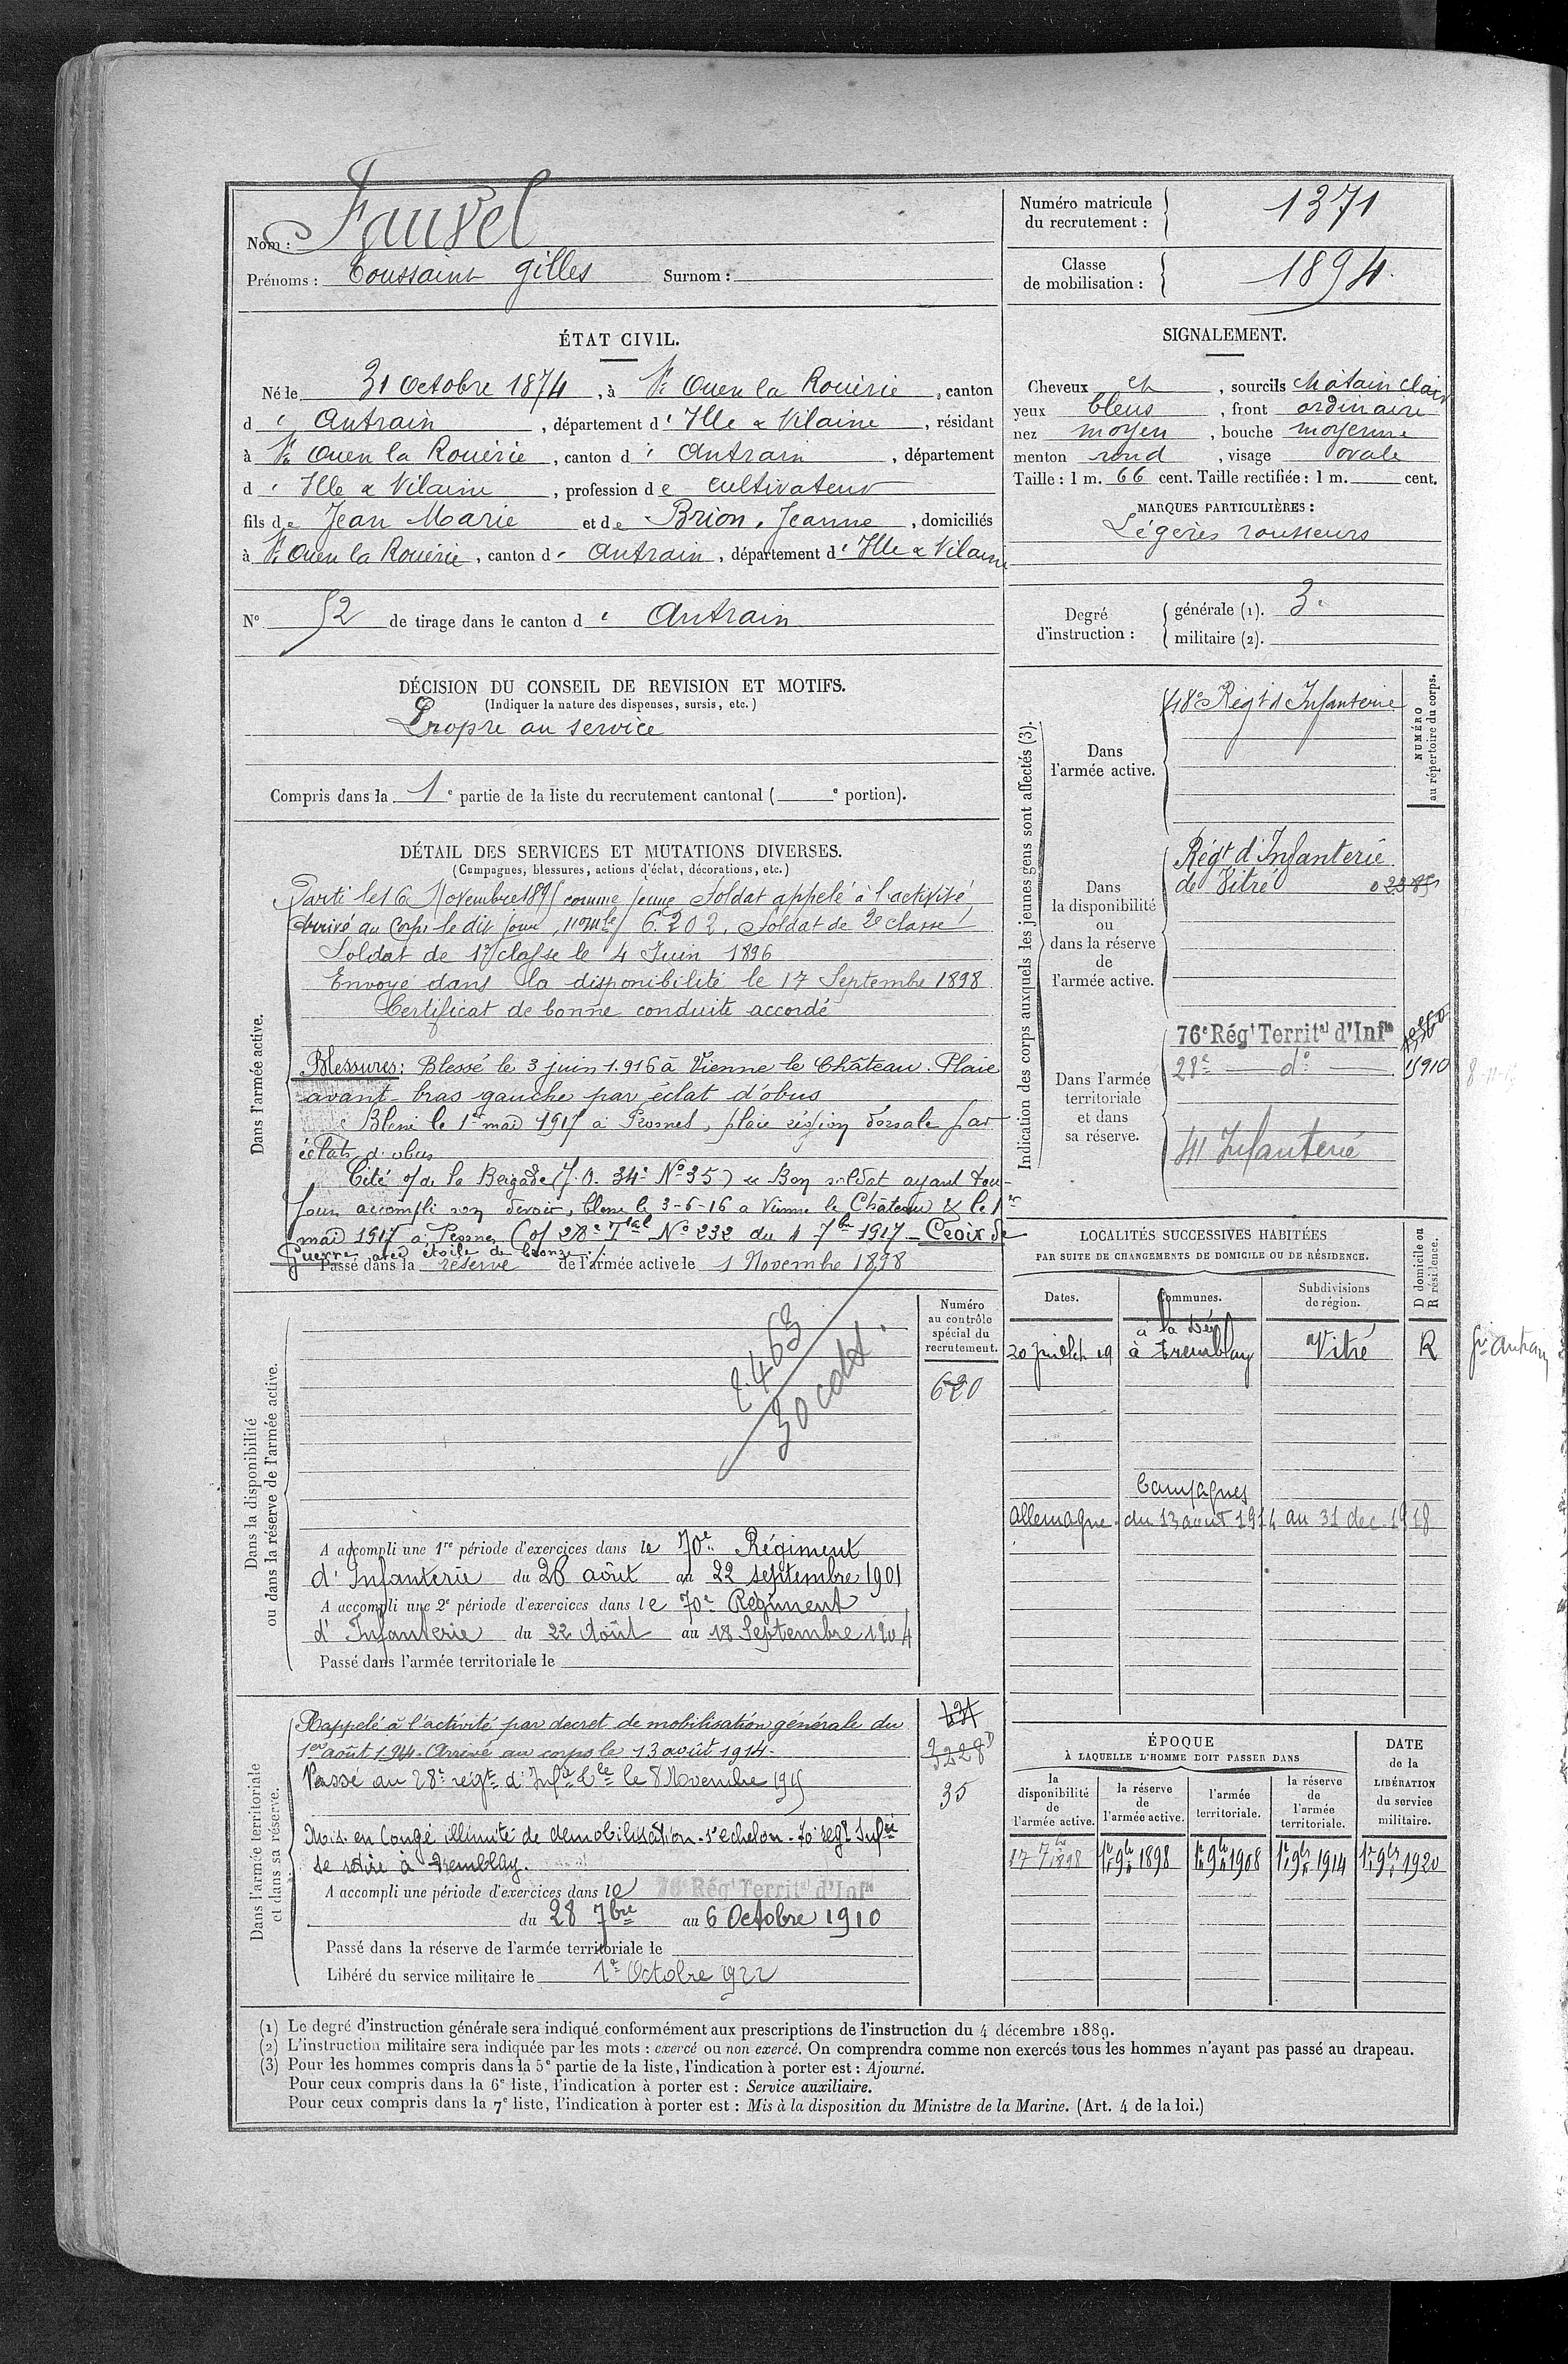 Nom : Fauvel
Prénoms : Toussaint Gilles Surnom :
Numéro matricule du recrutement : 1371
Classe de mobilisation : 1894.
ÉTAT CIVIL.
Né le 31 Octobre 1874, à St Ouen la Rouërie, canton
d' Antrain, département d' Ille & Vilaine, résidant
à St Ouen la Rouërie, canton d' Antrain, département
d' Ille & Vilaine, profession de cultivateur
fils de Jean Marie et de Brion, Jeanne, domiciliés
à St Ouen la Rouërie, canton d' Antrain, département d' Ille & Vilaine
N° 52 de tirage dans le canton d' Antrain
SIGNALEMENT.
Cheveux et, sourcils châtain clair
yeux bleus, front ordinaire
nez moyen, bouche moyenne
menton rond, visage ovale
Taille : 1 m. 66 cent. Taille rectifiée : 1 m. cent.
MARQUES PARTICULIÈRES :
Légères rousseurs
Degré d'instruction : générale (1). 3.
militaire (2).
DÉCISION DU CONSEIL DE REVISION ET MOTIFS.
(Indiquer la nature des dispenses, sursis, etc.)
Propre au service
Compris dans la 1e partie de la liste du recrutement cantonal ( e portion).
DÉTAIL DES SERVICES ET MUTATIONS DIVERSES.
(Campagnes, blessures, actions d'éclat, décorations, etc.)
Dans l'armée active.
Parti le 16 Novembre 1895 comme jeune Soldat appelé à l'activité
Arrivé au Corps le dit jour, n° mle 6.202. Soldat de 2e classe
Soldat de 1re classe le 4 Juin 1896
Envoyé dans la disponibilité le 17 Septembre 1898
Certificat de bonne conduite accordé
Blessures : Blessé le 3 juin 1.916 à Vienne le Château. Plaie
avant-bras gauche par éclat d'obus
Blessé le 1er mai 1917 à Prosnes, plaie région dorsale par
éclats d'obus
Cité O/ de la Brigade (J.O. 34e N° 35) « Bon soldat ayant tou-
jours accompli son devoir, blessé le 3-6-16 à Vienne le Château & le 1er
mai 1917 à Prosnes (O/ 28e Tal N° 232 du 1 7bre 1917 - Croix de
Guerre avec étoile de bronze
Passé dans la réserve de l'armée active le 1 Novembre 1898
Indication des corps auxquels les jeunes gens sont affectés (3).
NUMÉRO au répertoire du corps.
Dans l'armée active.
48e Régt d'Infanterie
Dans la disponibilité ou dans la réserve de l'armée active.
Régt d'Infanterie
de Vitré
Dans l'armée territoriale et dans sa réserve.
76e Régt Territal d'Infie
28e d° 15910
41 Infanterie
Dans la disponibilité ou dans la réserve de l'armée active.
Numéro au contrôle spécial du recrutement.
620
2.463
A accompli une 1re période d'exercices dans le 70e Régiment
d'Infanterie du 26 août au 22 septembre 1901
A accompli une 2e période d'exercices dans le 70e Régiment
d'Infanterie du 22 Août au 18 Septembre 1904
Passé dans l'armée territoriale le
LOCALITÉS SUCCESSIVES HABITÉES
PAR SUITE DE CHANGEMENTS DE DOMICILE OU DE RÉSIDENCE.
Dates. Communes. Subdivisions de région. D domicile ou R résidence.
20 juillet 19 à Tremblay Vitré R
Campagnes
Allemagne du 13 août 1914 au 31 dec. 1918
Dans l'armée territoriale et dans sa réserve.
Rappelé à l'activité par décret de mobilisation générale du
1er août 1914. Arrivé au corps le 13 août 1914.
Passé au 28e régt d'Infie Tle le 8 Novembre 1915
35
Mis en Congé illimité de démobilisation - échelon - 70 regt Infie
se retire à Tremblay.
A accompli une période d'exercices dans le 76e Régt Territal d'Infie
du 28 7bre au 6 Octobre 1910
Passé dans la réserve de l'armée territoriale le
Libéré du service militaire le 1er Octobre 1922
ÉPOQUE
À LAQUELLE L'HOMME DOIT PASSER DANS
la disponibilité de l'armée active. la réserve de l'armée active. l'armée territoriale. la réserve de l'armée territoriale. DATE de la LIBÉRATION du service militaire.
17 7bre 1898 1er 9bre 1898 1er 9bre 1908 1er 9bre 1914 1er 9bre 1920
(1) Le degré d'instruction générale sera indiqué conformément aux prescriptions de l'instruction du 4 décembre 1889.
(2) L'instruction militaire sera indiquée par les mots : exercé ou non exercé. On comprendra comme non exercés tous les hommes n'ayant pas passé au drapeau.
(3) Pour les hommes compris dans la 5e partie de la liste, l'indication à porter est : Ajourné.
Pour ceux compris dans la 6e liste, l'indication à porter est : Service auxiliaire.
Pour ceux compris dans la 7e liste, l'indication à porter est : Mis à la disposition du Ministre de la Marine. (Art. 4 de la loi.)